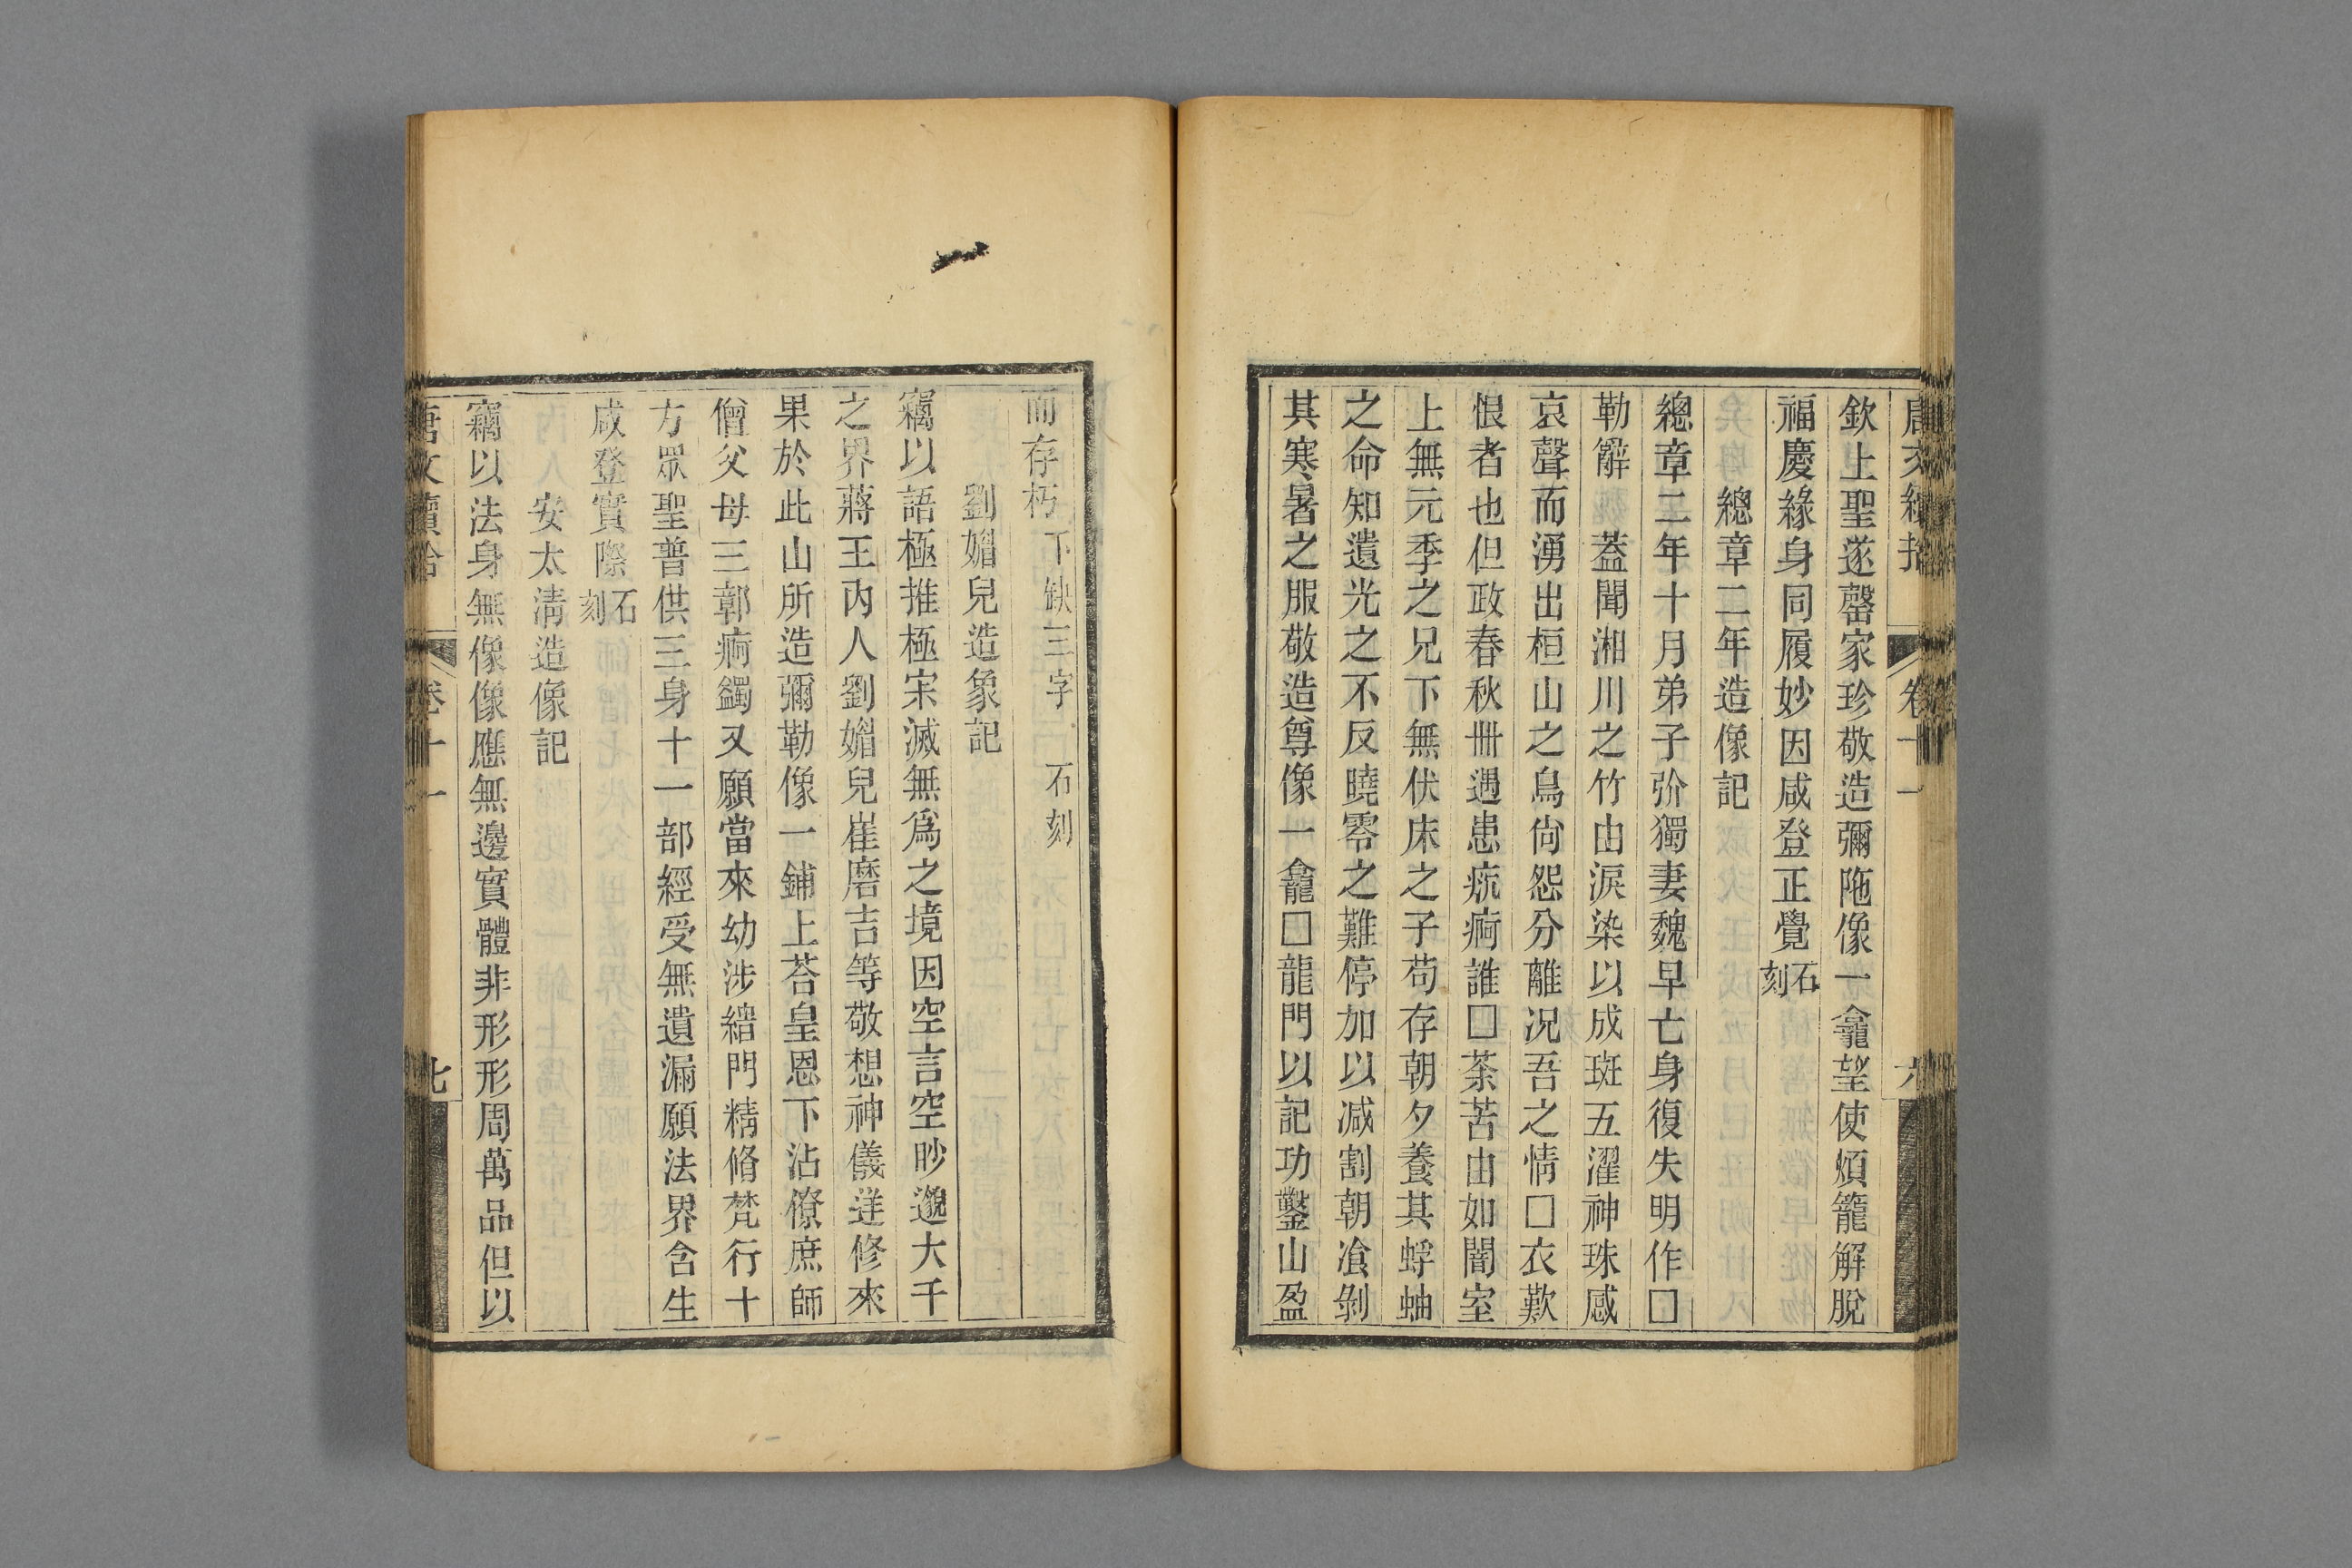 唐文續拾 卷十一 六
欽上聖遂罄家珍敬造彌陁像一龕望使煩籠解脫
福慶緣身同履妙因咸登正覺石刻
總章二年造像記
總章二年十月弟子㣃獨妻魏早亡身復失明作□
勒䉼 蓋聞湘川之竹由淚染以成斑五濯神珠感
哀聲而湧出桓山之鳥尙怨分離况吾之情□衣歎
恨者也但政春秋卌遇患㽻痾誰□茶苦由如闇室
上無元季之兄下無伏床之子苟存朝夕養其蜉蚰
之命知遺光之不反曉零之難停加以減割朝飡剝
其寒暑之服敬造尊像一龕□龍門以記功鑿山盈
而存朽下缺三字 石刻
劉媚兒造象記
竊以語極推極宋滅無爲之境因空言空眇邈大千
之界蔣王內人劉媚兒崔磨吉等敬想神儀逆修來
果於此山所造彌勒像一鋪上荅皇恩下沾僚庶師
僧父母三鄣痾蠲又願當來幼涉緇門精脩梵行十
方眾聖普供三身十一部經受無遺漏願法界含生
咸登實際石刻
安太淸造像記
竊以法身無像像應無邊實體非形形周萬品但以
唐文續拾 卷十一 七